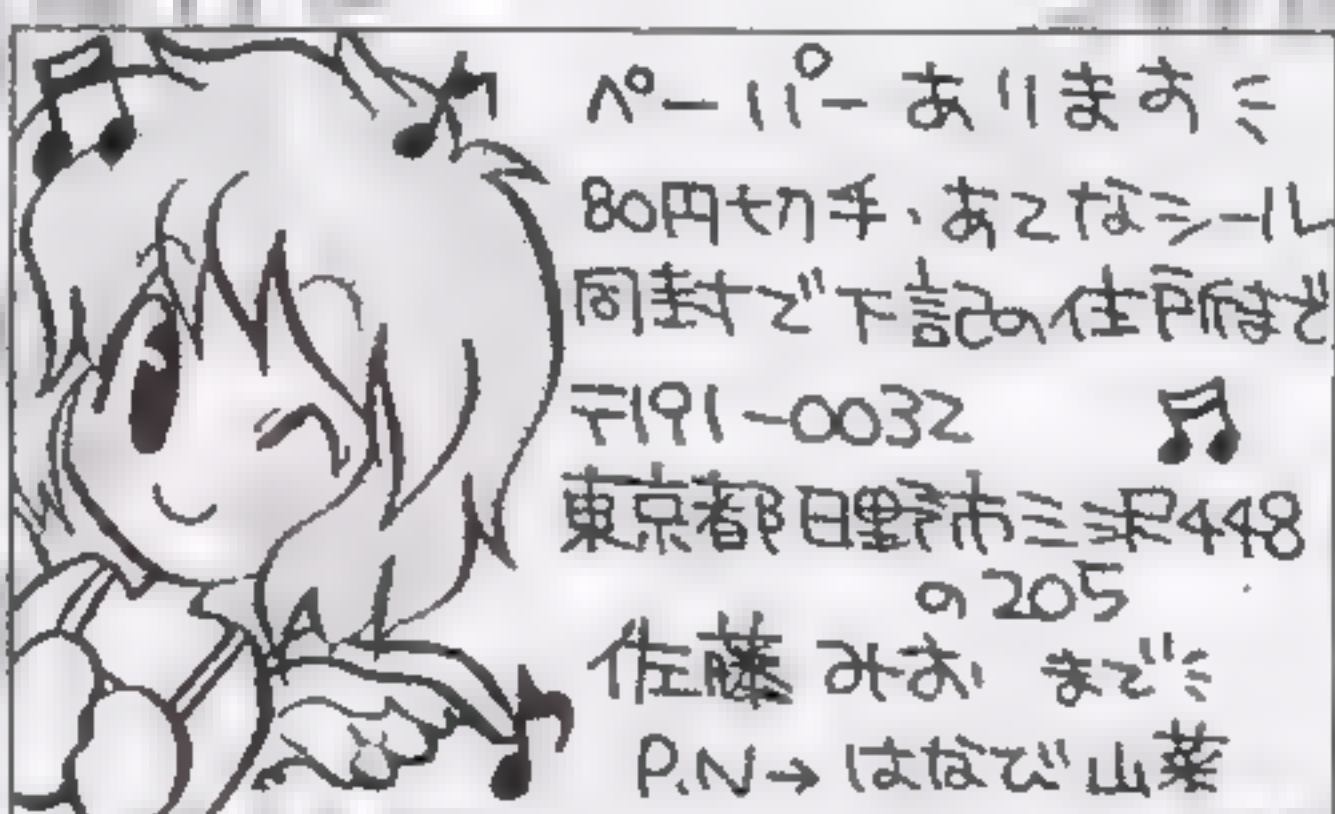 ペーパーありまお
80円切手、あてなシール
同封で下記の住所まで
〒191-0032
東京都日野市三沢448
の205
佐藤 みお まで
P.N→はなび山葵